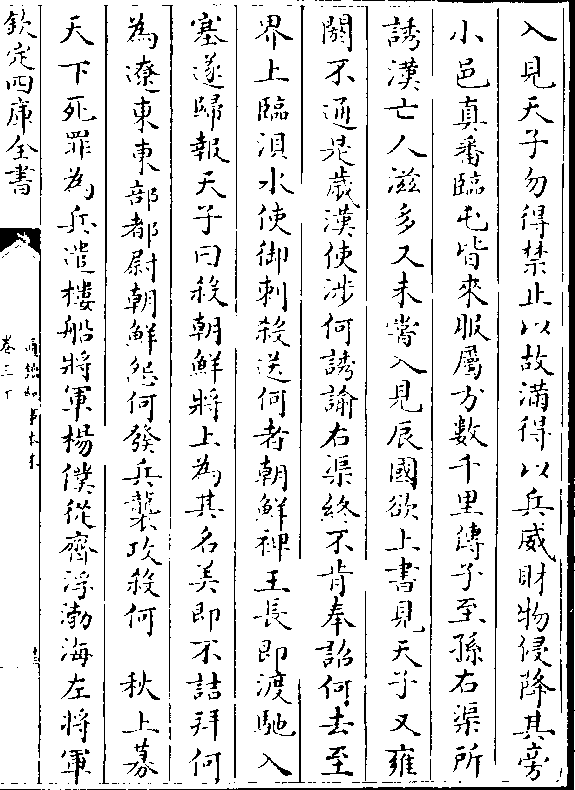 入見天子勿得禁止以故滿得以兵威財物侵降其旁
小邑真番臨屯皆來服屬方數千里傳子至孫右渠所
誘漢亡人滋多又未嘗入見辰國欲上書見天子又雍
閼不通是歲漢使涉何誘諭右渠終不肯奉詔何去至
界上臨浿水使御刺殺送何者朝鮮裨王長即渡馳入
塞遂歸報天子曰殺朝鮮將上為其名美即不詰拜何
為遼東東部都尉朝鮮怨何發兵襲攻殺何　秋上募
天下死罪為兵遣樓船將軍楊僕從齊浮渤海左將軍
欽定四庫全書
通鑑紀事本末
卷三下